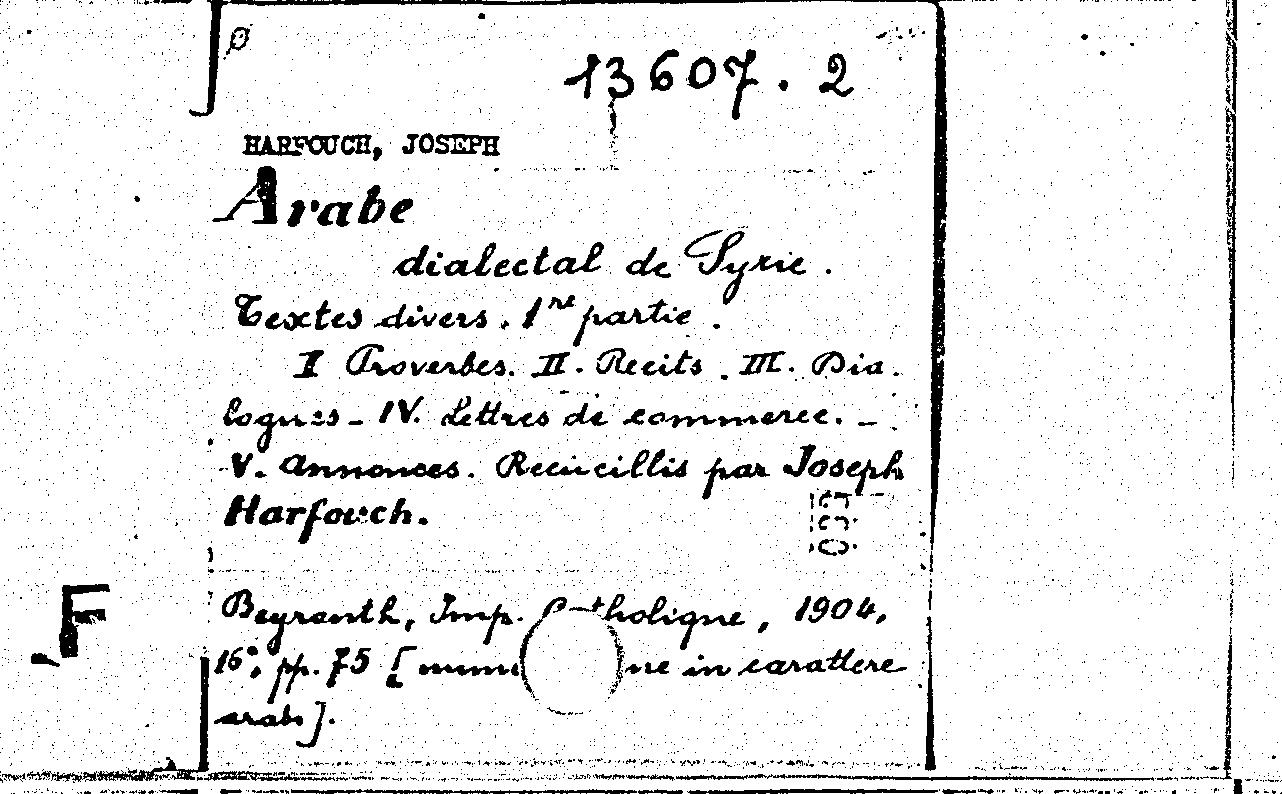 ø
13607.2
HARFOUCH, JOSEPH
Arabe
dialectal de Syrie.
Textes divers. 1re partie.
I Proverbes. II. Recits. III. Dia-
logues - IV. Lettres de commerce. -
V. Annonces. Recueillis par Joseph
Harfouch.
Beyrouth, Imp. Catholique, 1904,
16°, pp. 75 [ ne in carattere
arabo].
F